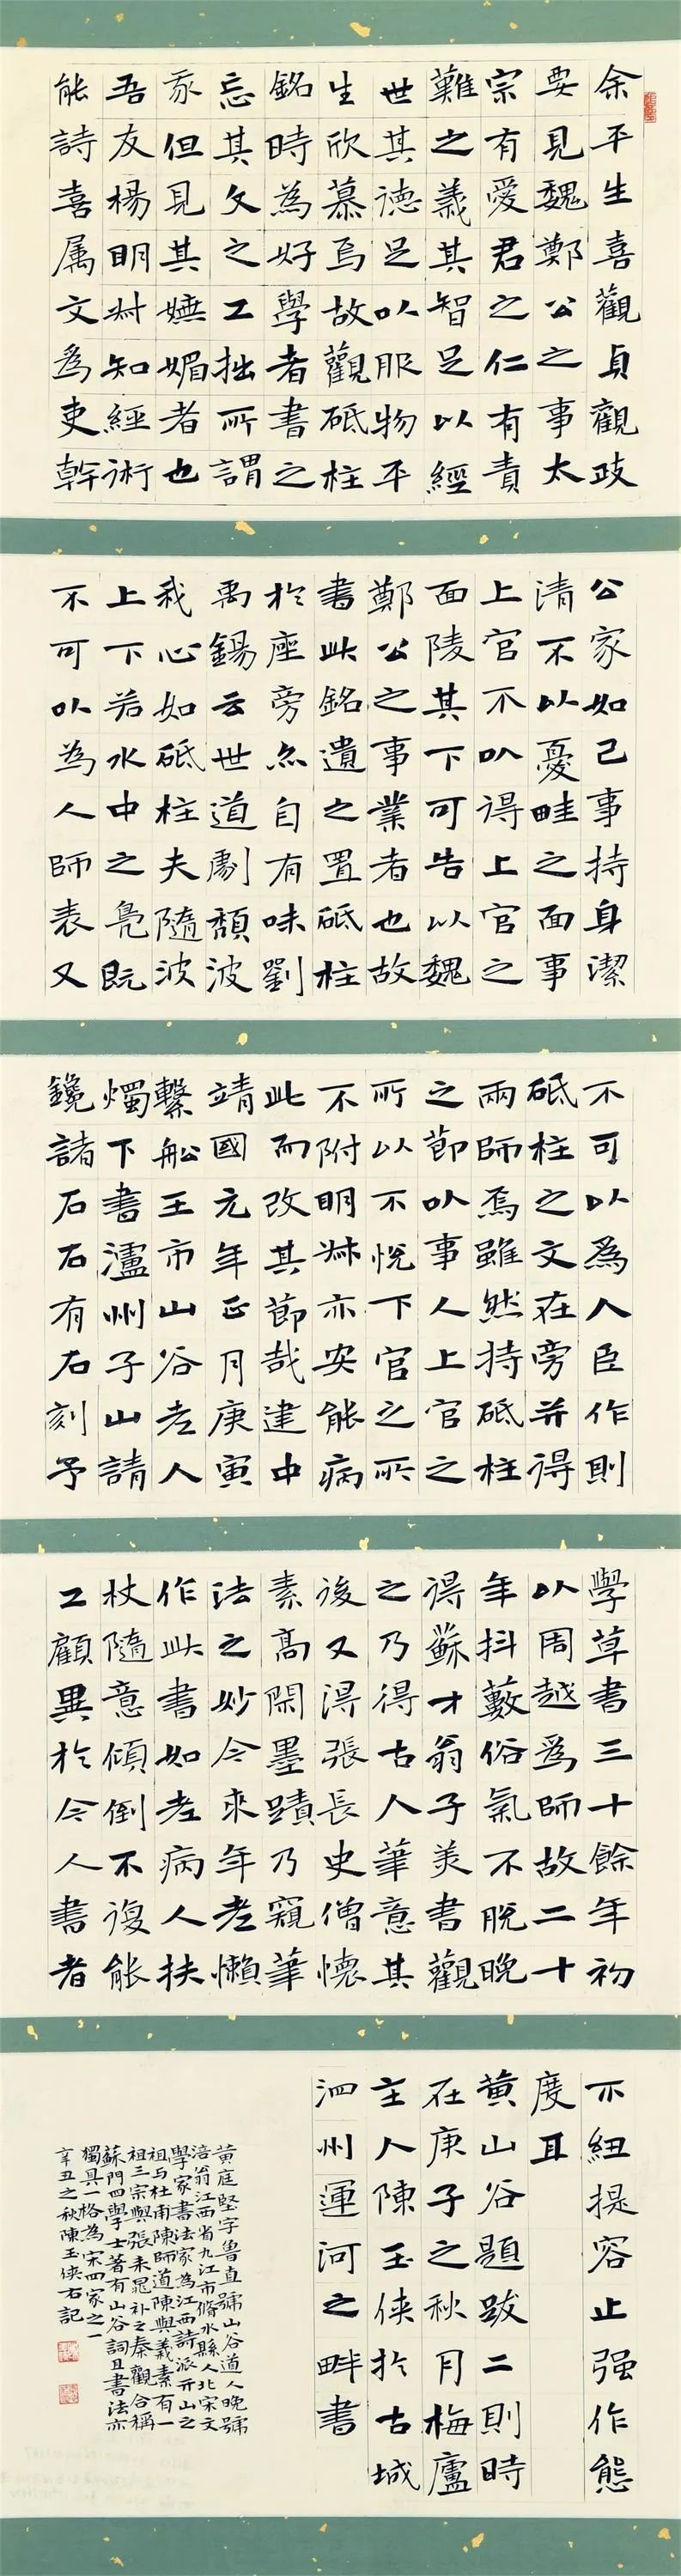 余平生喜觀貞觀政
要見魏鄭公之事太
宗有愛君之仁有責
難之義其智足以經
世其德足以服物平
生欣慕焉故觀砥柱
銘時為好學者書之
忘其文之工拙所謂
我但見其嫵媚者也
吾友楊明叔知經術
能詩喜属文為吏幹
公家如己事持身潔
清不以憂畦之面事
上官不以得上官之
面陵其下可告以魏
鄭公之事業者也故
書此銘遺之置砥柱
於座旁亦自有味劉
禹錫云世道劇頹波
我心如砥柱夫隨波
上下若水中之鳧既
不可以為人師表又
不可以為人臣作則
砥柱之文在旁并得
兩師焉雖然持砥柱
之節以事人上官之
所以不悅下官之所
不附明叔亦安能病
此而改其節哉建中
靖國元年正月庚寅
繫船王市山谷老人
燭下書瀘州子山請
鑱諸石石有石刻予
學草書三十餘年初
以周越為師故二十
年抖藪俗氣不脫晚
得蘇才翁子美書觀
之乃得古人筆意其
後又得張長史僧懷
素高閑墨蹟乃窺筆
法之妙今來年老懶
作此書如老病人扶
杖隨意傾倒不復能
工顧異於今人書者
不紐提容止强作態
度耳
黄山谷題跋二則時
在庚子之秋月梅廬
主人陳玉俠於古城
泗州運河之畔書
黄庭堅字魯直號山谷道人晚號
涪翁江西省九江市脩水縣人北宋文
學家書法家為江西詩派开山之
祖与杜甫陳師道陳與義素有一
祖三宗與張耒晁補之秦觀合稱
蘇門四學士著有山谷詞且書法亦
獨具一格為宋四家之一
辛丑之秋陳玉俠右記